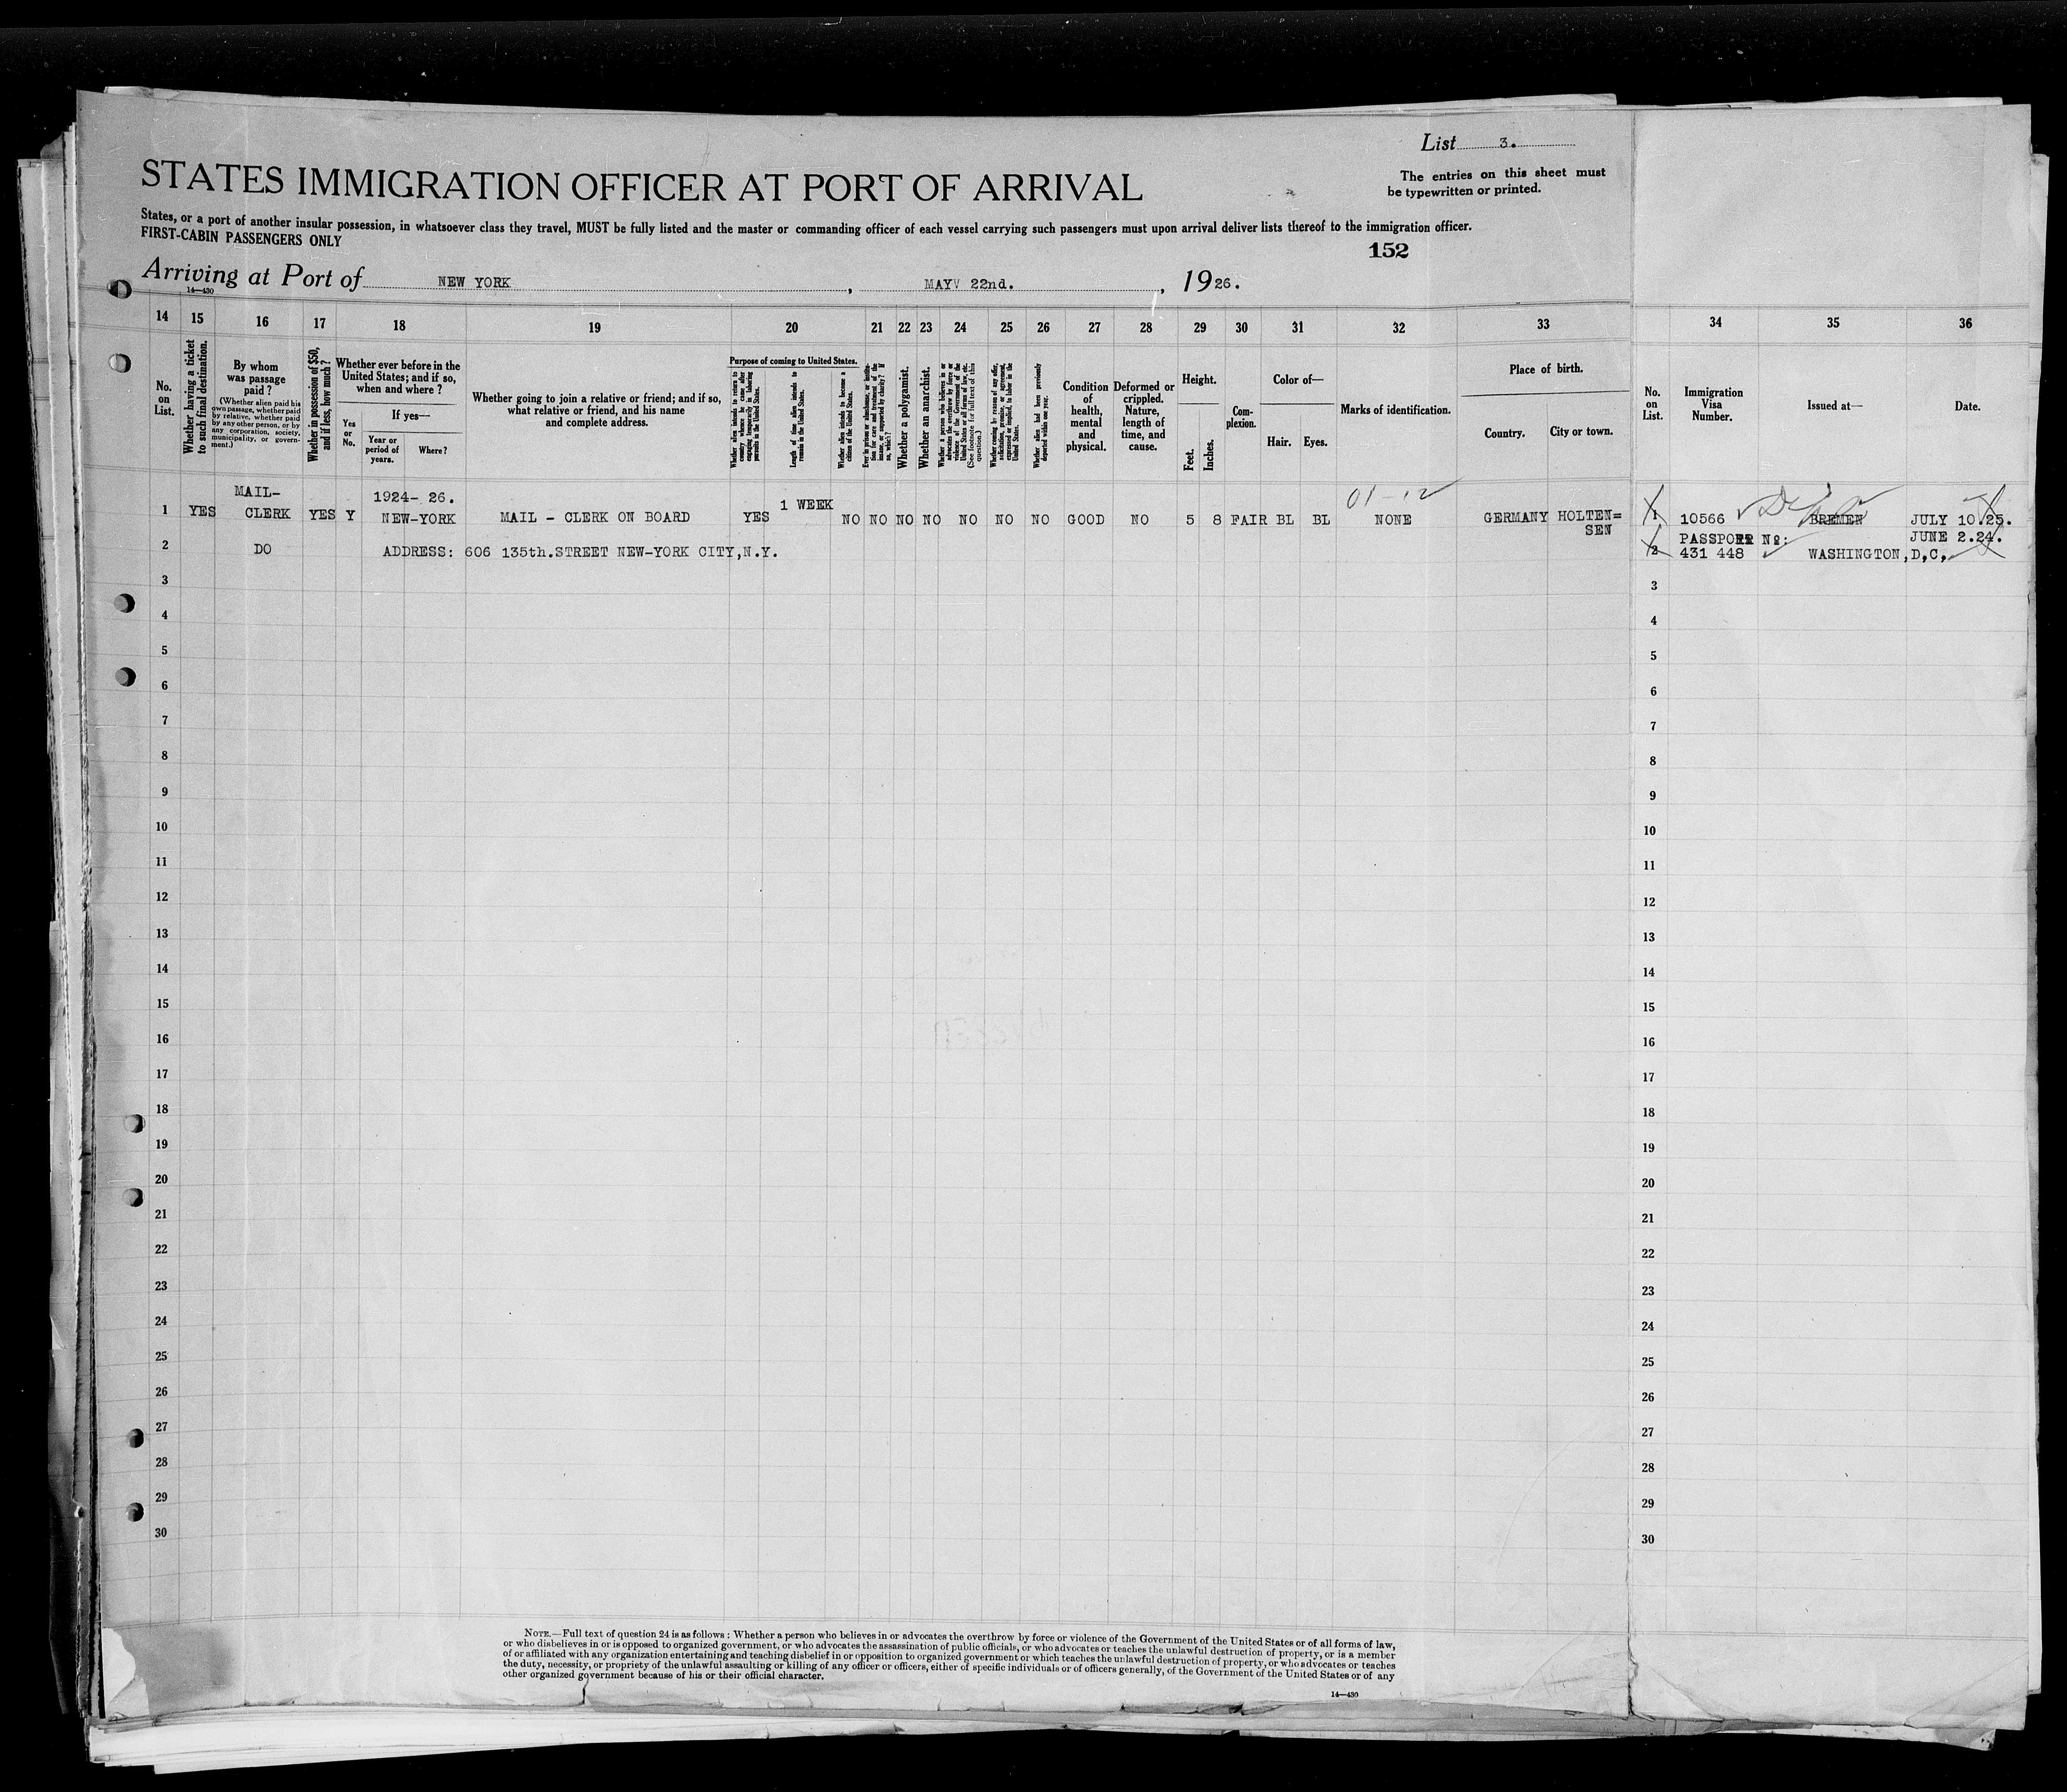 List 3.
STATES IMMIGRATION OFFICER AT PORT OF ARRIVAL
The entries on this sheet must
be typewritten or printed.
States, or a port of another insular possession, in whatsoever class they travel, MUST be fully listed and the master or commanding officer of each vessel carrying such passengers must upon arrival deliver lists thereof to the immigration officer.
FIRST-CABIN PASSENGERS ONLY
152
Arriving at Port of NEW YORK, MAYV 22nd., 1926.
14—430
14 15 16 17 18 19 20 21 22 23 24 25 26 27 28 29 30 31 32 33 34 35 36
No. on List.
Whether having a ticket to such final destination.
By whom was passage paid?
(Whether alien paid his own passage, whether paid by relative, whether paid by any other person, or by any corporation, society, municipality, or government.)
Whether in possession of $50, and if less, how much?
Whether ever before in the United States; and if so, when and where?
Yes or No.
If yes—
Year or period of years.
Where?
Whether going to join a relative or friend; and if so, what relative or friend, and his name and complete address.
Purpose of coming to United States.
Whether alien intends to return to country whence he came after engaging temporarily in laboring pursuits in the United States.
Length of time alien intends to remain in the United States.
Whether alien intends to become a citizen of the United States.
Ever in prison or almshouse, or institution for care and treatment of the insane, or supported by charity? If so, which?
Whether a polygamist.
Whether an anarchist.
Whether a person who believes in or advocates the overthrow by force or violence of the Government of the United States or all forms of law, etc. (See footnote for full text of this question.)
Whether coming by reason of any offer, solicitation, promise, or agreement, expressed or implied, to labor in the United States.
Whether alien had been previously deported within one year.
Condition of health, mental and physical.
Deformed or crippled. Nature, length of time, and cause.
Height.
Feet.
Inches.
Complexion.
Color of—
Hair.
Eyes.
Marks of identification.
Place of birth.
Country.
City or town.
No. on List.
Immigration Visa Number.
Issued at—
Date.
1 YES MAIL-CLERK YES Y 1924- 26. NEW-YORK MAIL - CLERK ON BOARD YES 1 WEEK NO NO NO NO NO NO NO GOOD NO 5 8 FAIR BL BL NONE GERMANY HOLTEN=SEN 1 10566 BREMEN JULY 10.25.
01-12
2 DO ADDRESS: 606 135th.STREET NEW-YORK CITY,N.Y. 2 PASSPORT No: 431 448 WASHINGTON,D,C, JUNE 2.24.
3 3
4 4
5 5
6 6
7 7
8 8
9 9
10 10
11 11
12 12
13 13
14 14
15 15
16 16
17 17
18 18
19 19
20 20
21 21
22 22
23 23
24 24
25 25
26 26
27 27
28 28
29 29
30 30
NOTE.—Full text of question 24 is as follows: Whether a person who believes in or advocates the overthrow by force or violence of the Government of the United States or of all forms of law,
or who disbelieves in or is opposed to organized government, or who advocates the assassination of public officials, or who advocates or teaches the unlawful destruction of property, or is a member
of or affiliated with any organization entertaining and teaching disbelief in or opposition to organized government or which teaches the unlawful destruction of property, or who advocates or teaches
the duty, necessity, or propriety of the unlawful assaulting or killing of any officer or officers, either of specific individuals or of officers generally, of the Government of the United States or of any
other organized government because of his or their official character.
14—430